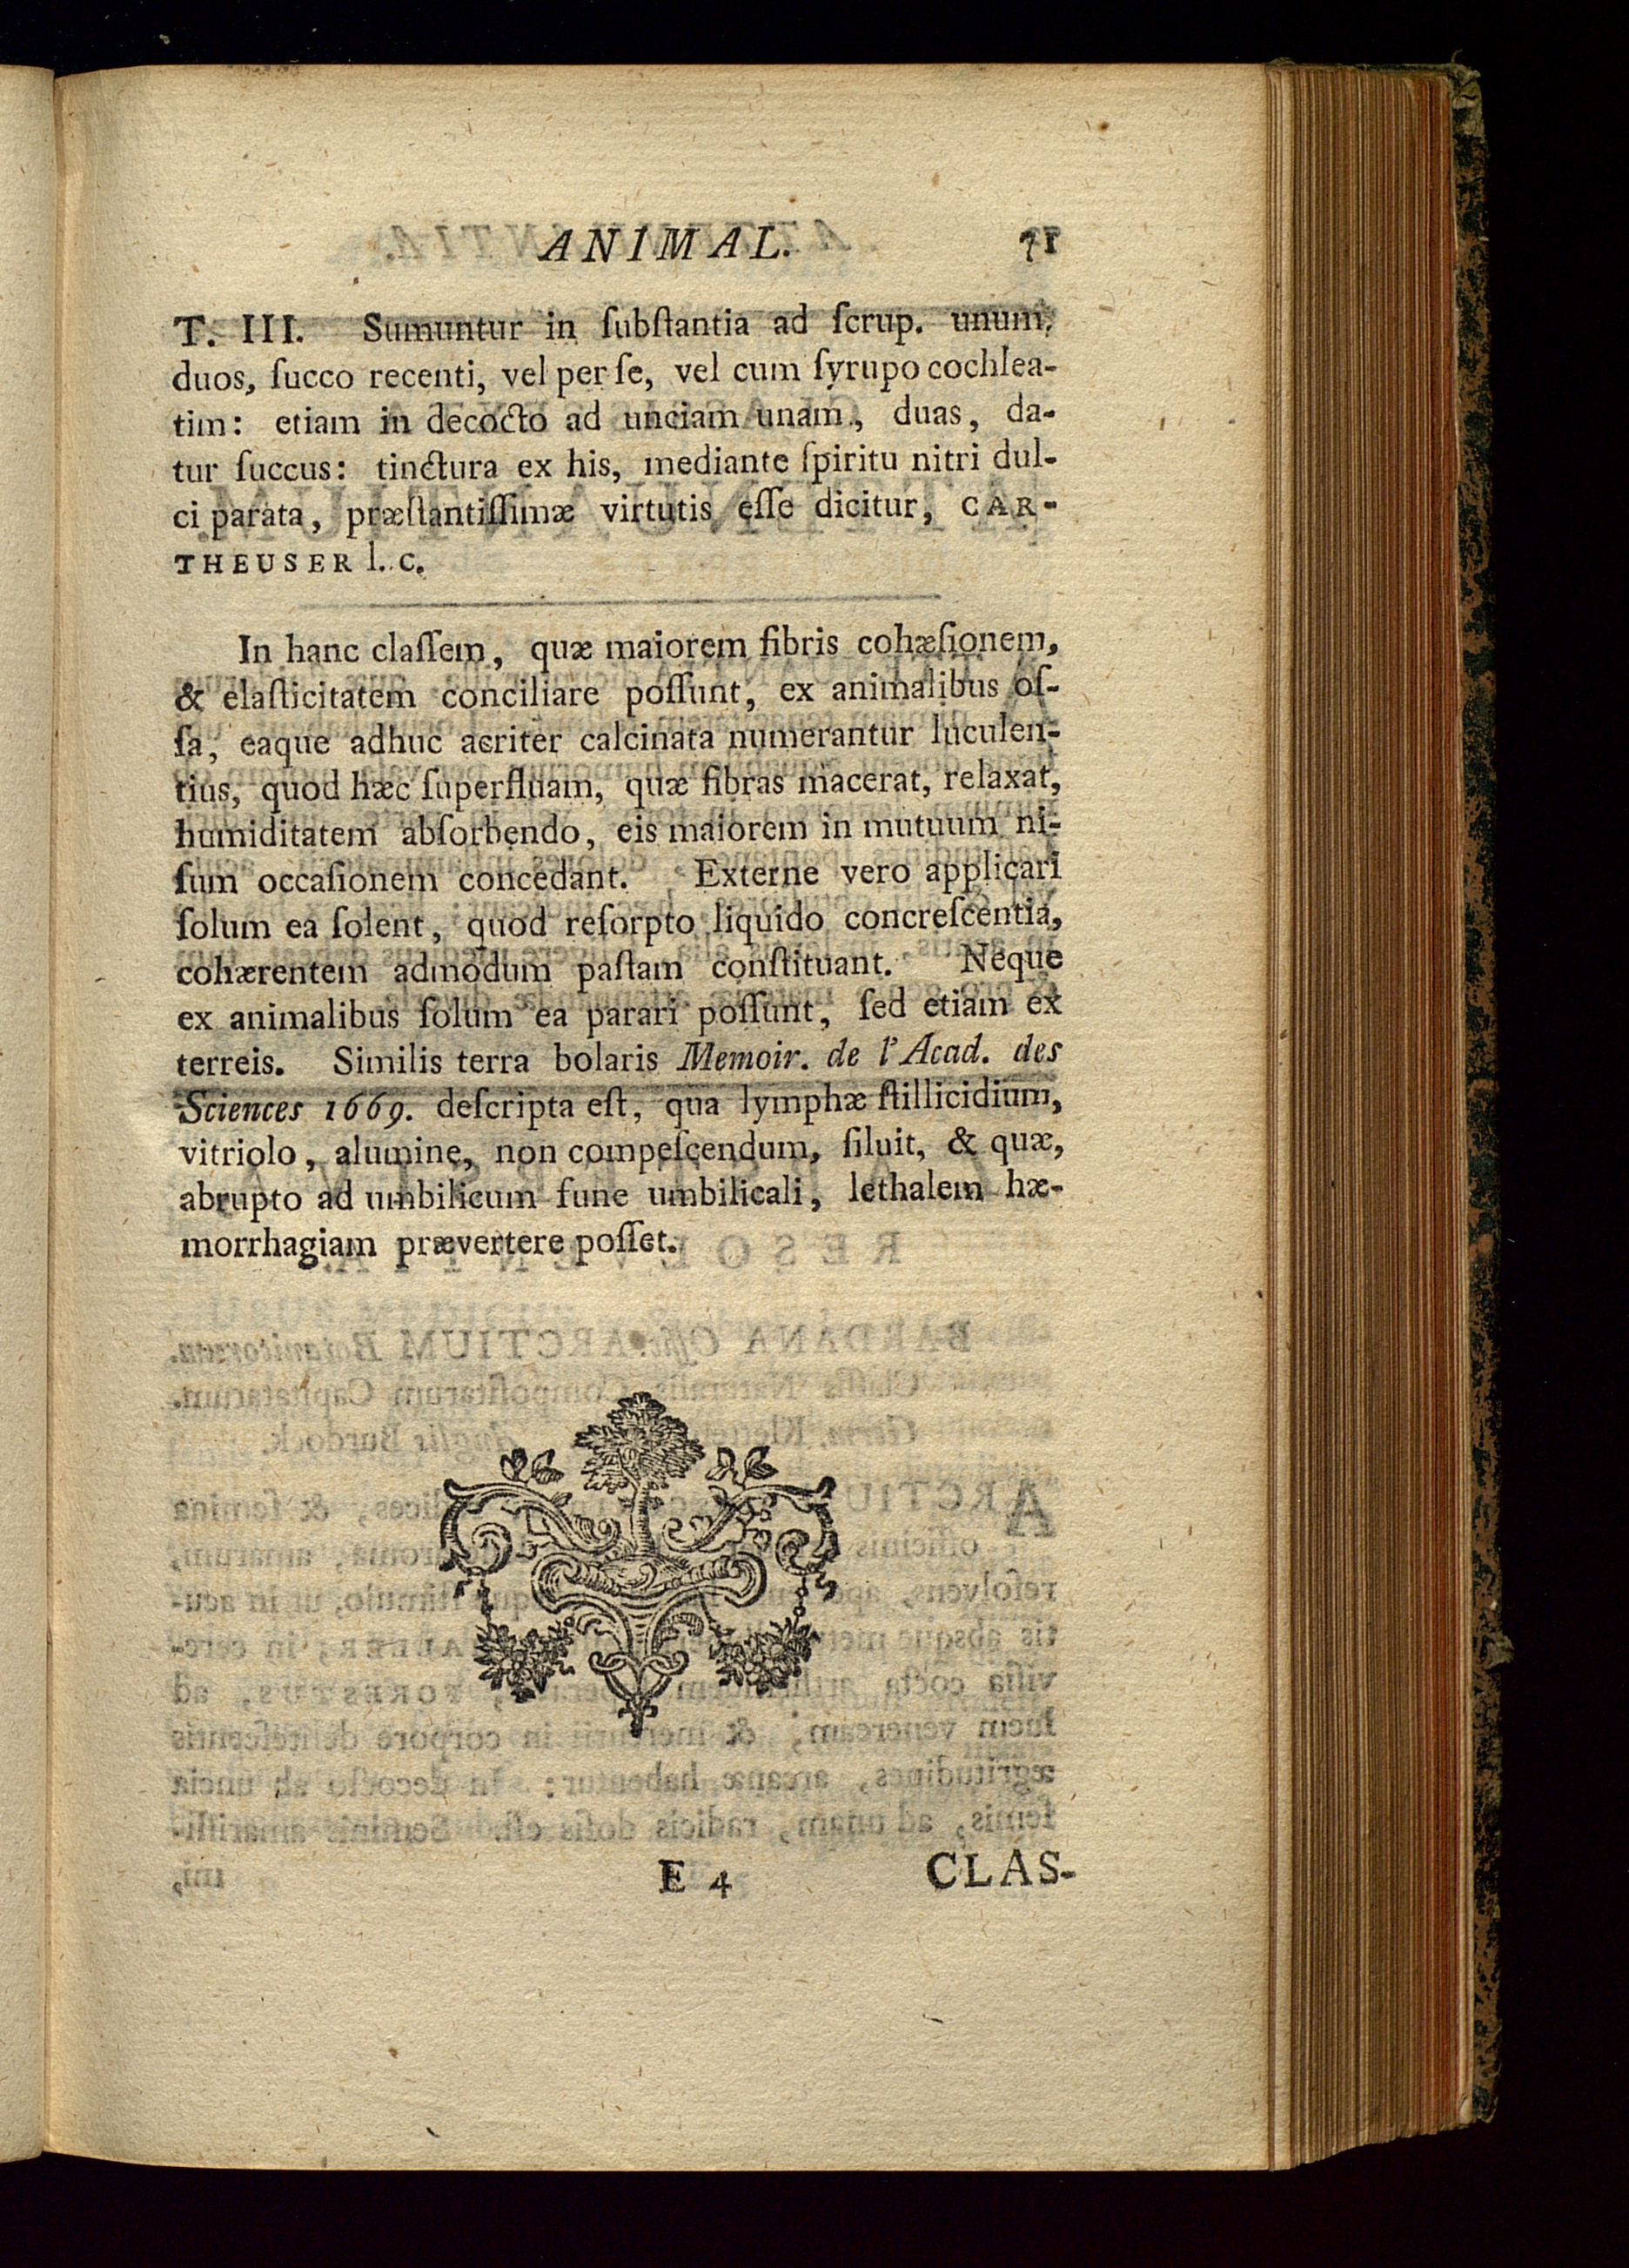 ANIMAL. 71
T. III. Sumuntur in ſubſtantia ad ſcrup. unum,
duos, ſucco recenti, vel per ſe, vel cum ſyrupo cochlea-
tim: etiam in decocto ad unciam unam, duas, da-
tur ſuccus: tinctura ex his, mediante ſpiritu nitri dul-
ci parata, præſtantiſſimæ virtutis eſſe dicitur, CAR-
THEUSER l. c.
In hanc claſſem, quæ maiorem fibris cohæſionem,
& elaſticitatem conciliare poſſunt, ex animalibus oſ-
ſa, eaque adhuc acriter calcinata numerantur luculen-
tius, quod hæc ſuperfluam, quæ fibras macerat, relaxat,
humiditatem abſorbendo, eis maiorem in mutuum ni-
ſum occaſionem concedant. Externe vero applicari
ſolum ea ſolent, quod reſorpto liquido concreſcentia,
cohærentem admodum paſtam conſtituant. Neque
ex animalibus ſolum ea parari poſſunt, ſed etiam ex
terreis. Similis terra bolaris Memoir. de l'Acad. des
Sciences 1669. deſcripta eſt, qua lymphæ ſtillicidium,
vitriolo, alumine, non compeſcendum, ſiluit, & quæ,
abrupto ad umbilicum fune umbilicali, lethalem hæ-
morrhagiam prævertere poſſet.
E 4 CLAS-